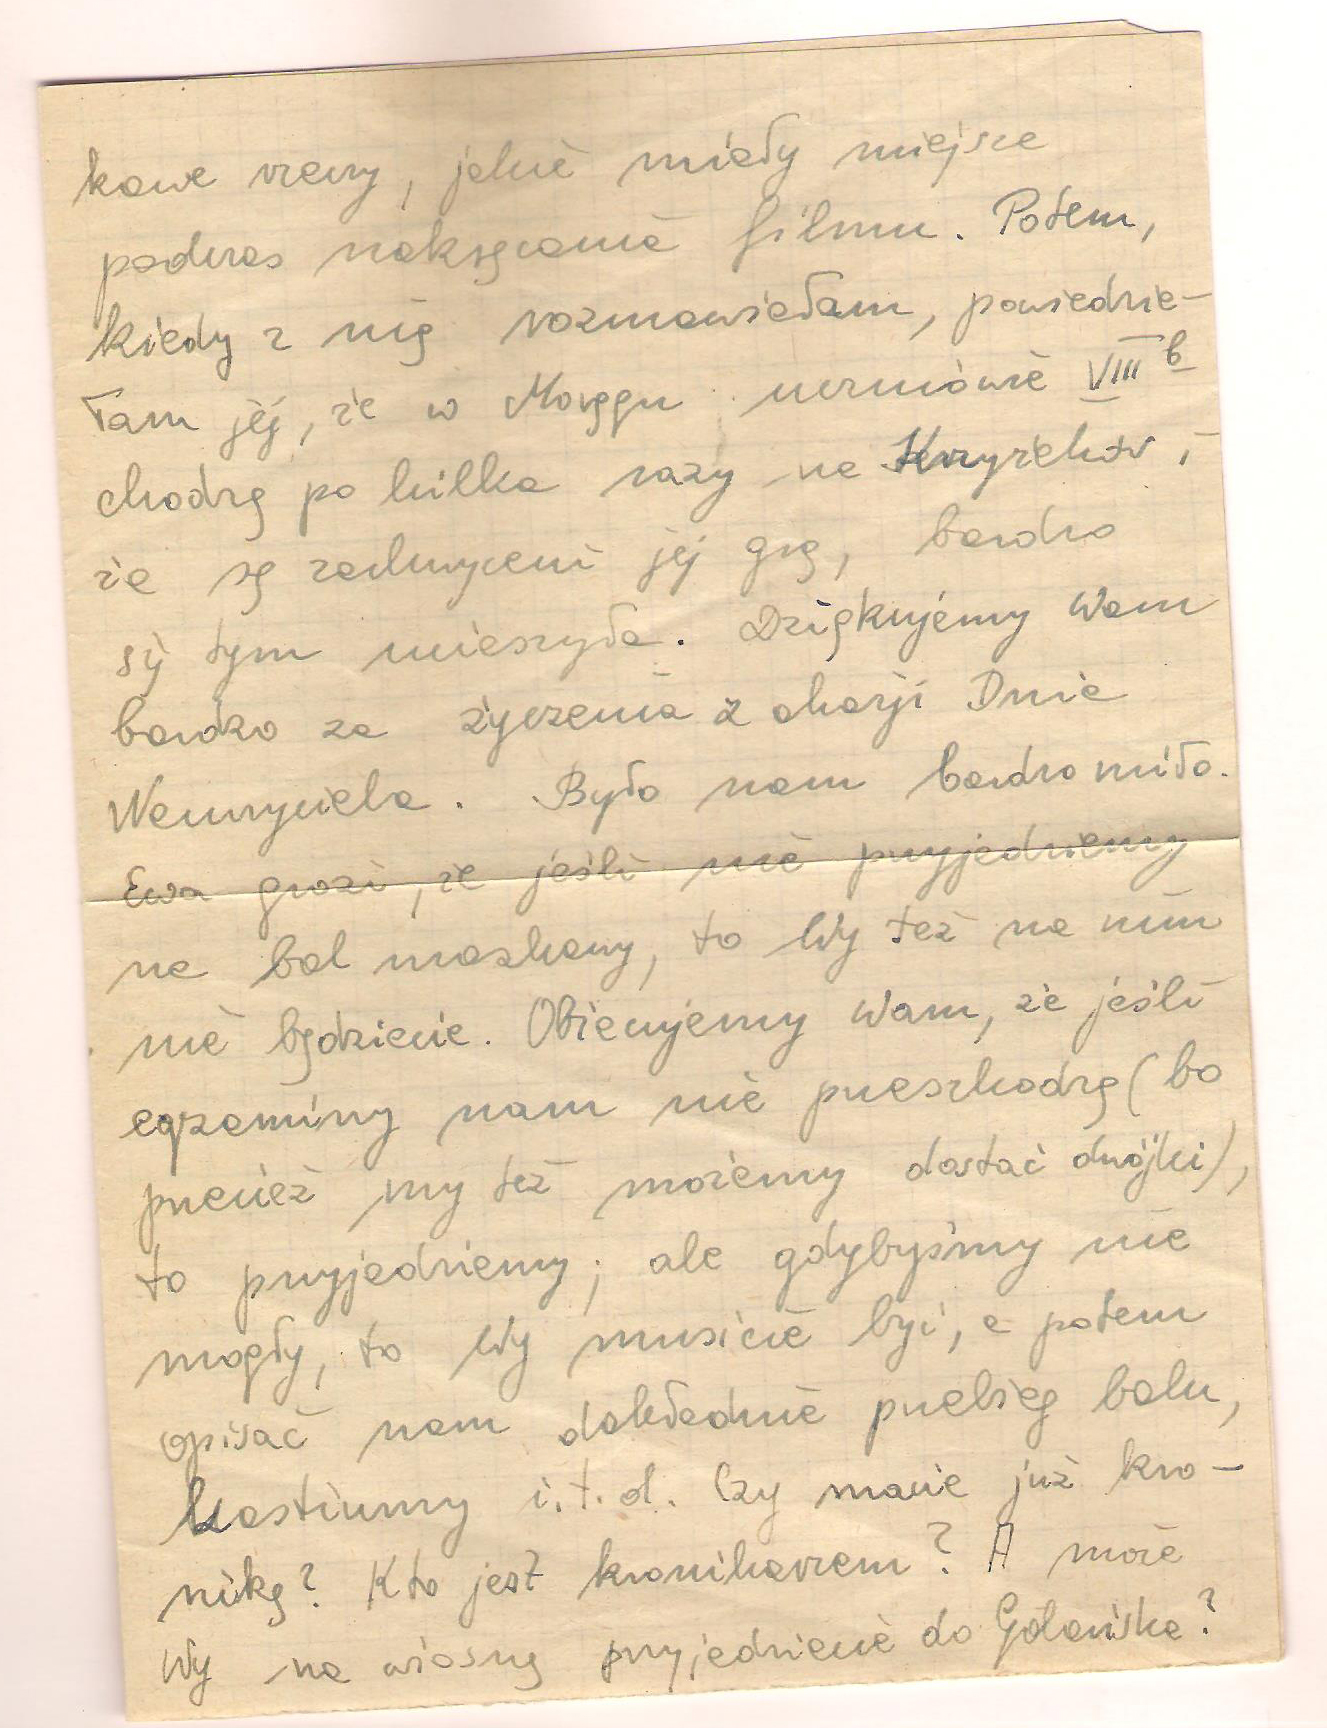 kowe sceny, jakie miały miejsce
podczas nakręcania filmu. Potem,
kiedy z nią rozmawiałam, powiedzia-
łam jej, że w Morągu uczniowie VIII b
chodzą po kilka razy na Krzyżaków i
że są zachwyceni jej grą, bardzo
się tym ucieszyła. Dziękujemy Wam
bardzo za życzenia z okazji Dnia
Nauczyciela. Było nam bardzo miło.
Ewa grozi, że jeśli nie przyjedziemy
na bal maskowy, to Wy też na nim
nie będziecie. Obiecujemy Wam, że jeśli
egzaminy nam nie przeszkodzą (bo
przecież my też możemy dostać dwójki),
to przyjedziemy; ale gdybyśmy nie
mogły, to Wy musicie być, a potem
opisać nam dokładnie przebieg balu,
kostiumy i.t.d. Czy macie już kro-
nikę? Kto jest kronikarzem? A może
Wy na wiosnę przyjedziecie do Gdańska?